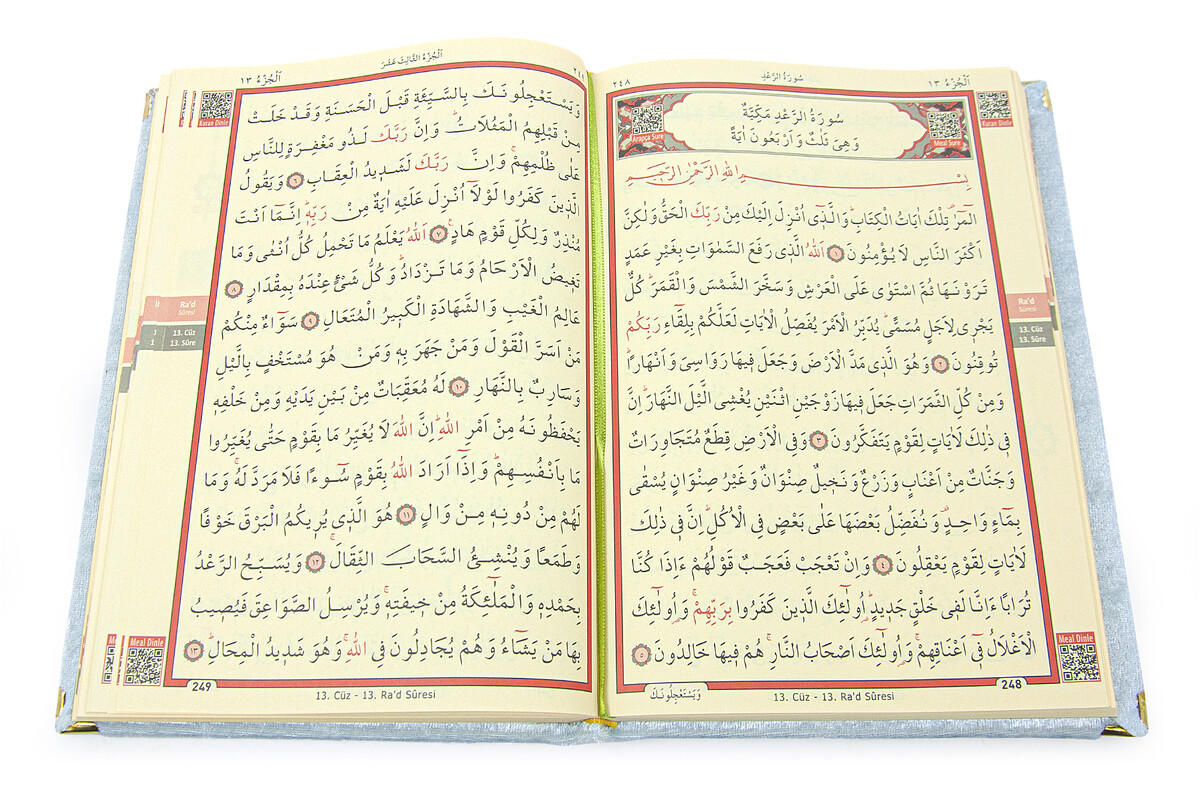 اَلْجُزْءُ ١٣
سُورَةُ الرَّعْدِ
٢٤٨
Kuran Dinle
Arapça Sure
Meal Sure
سُورَةُ الرَّعْدِ مَكِّيَّةٌ
وَهِىَ ثَلٰثٌ وَاَرْبَعُونَ اٰيَةً
بِسْمِ اللّٰهِ الرَّحْمٰنِ الرَّحِيمِ
الٓمٓرٰ۠ تِلْكَ اٰيَاتُ الْكِتَابِۜ وَالَّذ۪ٓى اُنْزِلَ اِلَيْكَ مِنْ رَبِّكَ الْحَقُّ وَلٰكِنَّ
اَكْثَرَ النَّاسِ لَا يُؤْمِنُونَ ﴿١﴾ اَللّٰهُ الَّذ۪ى رَفَعَ السَّمٰوَاتِ بِغَيْرِ عَمَدٍ
تَرَوْنَهَا ثُمَّ اسْتَوٰى عَلَى الْعَرْشِ وَسَخَّرَ الشَّمْسَ وَالْقَمَرَۜ كُلٌّ
يَجْر۪ى لِاَجَلٍ مُسَمًّىۜ يُدَبِّرُ الْاَمْرَ يُفَصِّلُ الْاٰيَاتِ لَعَلَّكُمْ بِلِقَٓاءِ رَبِّكُمْ
تُوقِنُونَ ﴿٢﴾ وَهُوَ الَّذ۪ى مَدَّ الْاَرْضَ وَجَعَلَ ف۪يهَا رَوَاسِىَ وَاَنْهَارًاۜ
وَمِنْ كُلِّ الثَّمَرَاتِ جَعَلَ ف۪يهَا زَوْجَيْنِ اثْنَيْنِ يُغْشِى الَّيْلَ النَّهَارَۜ اِنَّ
ف۪ى ذٰلِكَ لَاٰيَاتٍ لِقَوْمٍ يَتَفَكَّرُونَ ﴿٣﴾ وَفِى الْاَرْضِ قِطَعٌ مُتَجَاوِرَاتٌ
وَجَنَّاتٌ مِنْ اَعْنَابٍ وَزَرْعٌ وَنَخ۪يلٌ صِنْوَانٌ وَغَيْرُ صِنْوَانٍ يُسْقٰى
بِمَٓاءٍ وَاحِدٍ۠ وَنُفَضِّلُ بَعْضَهَا عَلٰى بَعْضٍ فِى الْاُكُلِۜ اِنَّ ف۪ى ذٰلِكَ
لَاٰيَاتٍ لِقَوْمٍ يَعْقِلُونَ ﴿٤﴾ وَاِنْ تَعْجَبْ فَعَجَبٌ قَوْلُهُمْ ءَاِذَا كُنَّا
تُرَابًا ءَاِنَّا لَف۪ى خَلْقٍ جَد۪يدٍۜ اُو۬لٰٓئِكَ الَّذ۪ينَ كَفَرُوا بِرَبِّهِمْۚ وَاُو۬لٰٓئِكَ
الْاَغْلَالُ ف۪ٓى اَعْنَاقِهِمْۚ وَاُو۬لٰٓئِكَ اَصْحَابُ النَّارِۚ هُمْ ف۪يهَا خَالِدُونَ ﴿٥﴾
Ra'd
Sûresi
13. Cüz
13. Sûre
Meal Dinle
248
13. Cüz - 13. Ra'd Sûresi
وَيَسْتَعْجِلُونَكَ
اَلْجُزْءُ الثَّالِثَ عَشَرَ
اَلْجُزْءُ ١٣
Kuran Dinle
وَيَسْتَعْجِلُونَكَ بِالسَّيِّئَةِ قَبْلَ الْحَسَنَةِ وَقَدْ خَلَتْ
مِنْ قَبْلِهِمُ الْمَثُلَاتُۜ وَاِنَّ رَبَّكَ لَذُو مَغْفِرَةٍ لِلنَّاسِ
عَلٰى ظُلْمِهِمْۚ وَاِنَّ رَبَّكَ لَشَد۪يدُ الْعِقَابِ ﴿٦﴾ وَيَقُولُ
الَّذ۪ينَ كَفَرُوا لَوْلَٓا اُنْزِلَ عَلَيْهِ اٰيَةٌ مِنْ رَبِّه۪ۜ اِنَّمَٓا اَنْتَ
مُنْذِرٌ وَلِكُلِّ قَوْمٍ هَادٍ۟ ﴿٧﴾ اَللّٰهُ يَعْلَمُ مَا تَحْمِلُ كُلُّ اُنْثٰى وَمَا
تَغ۪يضُ الْاَرْحَامُ وَمَا تَزْدَادُۜ وَكُلُّ شَىْءٍ عِنْدَهُ بِمِقْدَارٍ ﴿٨﴾
عَالِمُ الْغَيْبِ وَالشَّهَادَةِ الْكَب۪يرُ الْمُتَعَالِ ﴿٩﴾ سَوَٓاءٌ مِنْكُمْ
مَنْ اَسَرَّ الْقَوْلَ وَمَنْ جَهَرَ بِه۪ وَمَنْ هُوَ مُسْتَخْفٍ بِالَّيْلِ
وَسَارِبٌ بِالنَّهَارِ ﴿١٠﴾ لَهُ مُعَقِّبَاتٌ مِنْ بَيْنِ يَدَيْهِ وَمِنْ خَلْفِه۪
يَحْفَظُونَهُ مِنْ اَمْرِ اللّٰهِۜ اِنَّ اللّٰهَ لَا يُغَيِّرُ مَا بِقَوْمٍ حَتّٰى يُغَيِّرُوا
مَا بِاَنْفُسِهِمْۜ وَاِذَٓا اَرَادَ اللّٰهُ بِقَوْمٍ سُٓوءًا فَلَا مَرَدَّ لَهُۚ وَمَا
لَهُمْ مِنْ دُونِه۪ مِنْ وَالٍ ﴿١١﴾ هُوَ الَّذ۪ى يُر۪يكُمُ الْبَرْقَ خَوْفًا
وَطَمَعًا وَيُنْشِئُ السَّحَابَ الثِّقَالَۚ ﴿١٢﴾ وَيُسَبِّحُ الرَّعْدُ
بِحَمْدِه۪ وَالْمَلٰٓئِكَةُ مِنْ خ۪يفَتِه۪ۚ وَيُرْسِلُ الصَّوَاعِقَ فَيُص۪يبُ
بِهَا مَنْ يَشَٓاءُ وَهُمْ يُجَادِلُونَ فِى اللّٰهِۚ وَهُوَ شَد۪يدُ الْمِحَالِۜ ﴿١٣﴾
Ra'd
Sûresi
13. Cüz
13. Sûre
Meal Dinle
249
13. Cüz - 13. Ra'd Sûresi